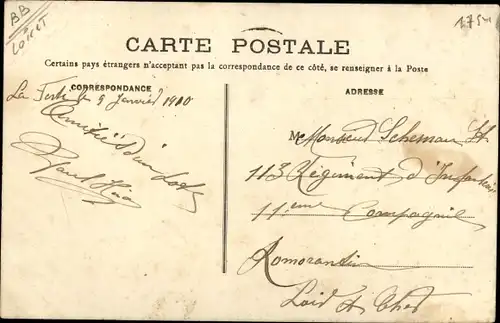 BB
LOIRET
175
CARTE POSTALE
Certains pays étrangers n'acceptant pas la correspondance de ce côté, se renseigner à la Poste
CORRESPONDANCE
ADRESSE
La Ferté le 5 Janvier 1910
Amitié d'un
Paul
M Monsieur
113 Régiment d'Infanterie
11eme Compagnie
Romorantin
Loir et Cher